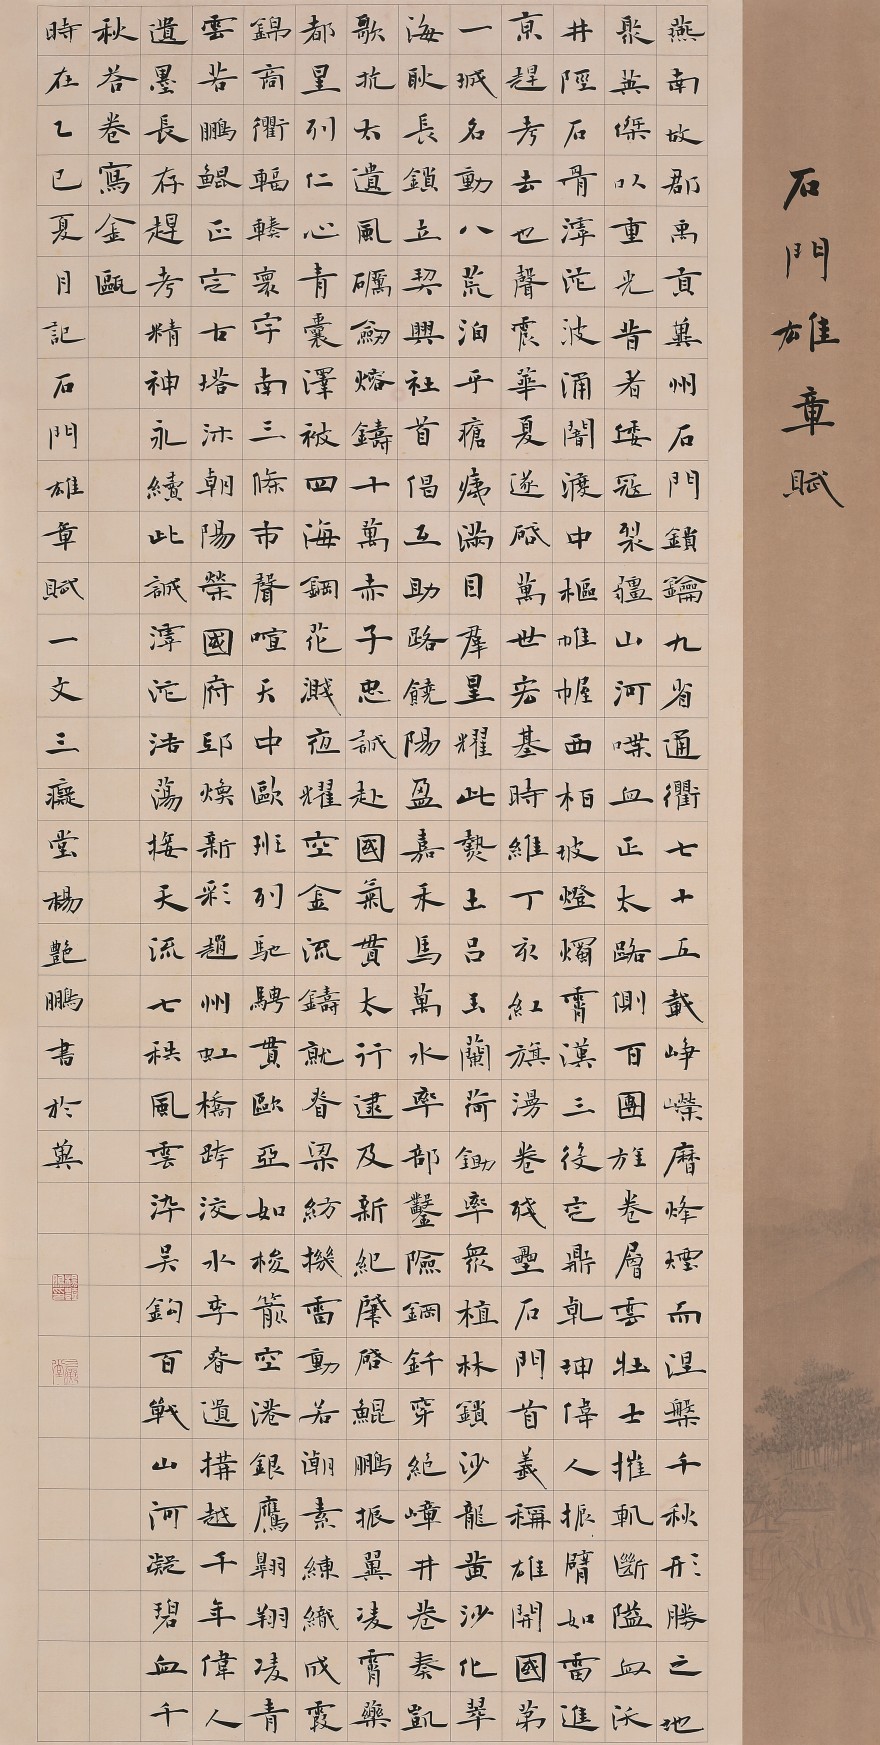 石門雄章賦
燕南故郡禹貢冀州石門鎖鑰九省通衢七十五載崢嶸磨烽煙而涅槃千秋形勝之地
聚英傑以重光昔者倭寇裂疆山河喋血正太路側百團旌卷層雲壯士摧軌斷隘血沃
井陘石骨滹沱波涌闇渡中樞帷幄西柏坡燈燭霄漢三役定鼎乾坤偉人振臂如雷進
京趕考去也聲震華夏遂啟萬世宏基時維丁亥紅旗漫卷殘壘石門首義稱雄開國第
一城名動八荒洎乎瘡痍滿目群星耀此熱土呂玉蘭荷鋤率眾植林鎖沙龍黃沙化翠
海耿長鎖立契興社首倡互助路饒陽盈嘉禾馬萬水率部鑿險鋼釺穿絕嶂井巷奏凱
歌抗大遺風礪劍熔鑄十萬赤子忠誠赴國氣貫太行逮及新紀肇啓鯤鵬振翼凌霄藥
都星列仁心青囊澤被四海鋼花濺夜耀空金流鑄就脊梁紡機雷動若潮素練織成霞
錦商衢輻輳寰宇南三條市聲喧天中歐班列馳騁貫歐亞如梭箭空港銀鷹翱翔凌青
雲若鵬鯤正定古塔沐朝陽榮國府邸煥新彩趙州虹橋跨洨水李春遺構越千年偉人
遺墨長存趕考精神永續此誠滹沱浩蕩接天流七秩風雲淬吳鉤百戰山河凝碧血千
秋答卷寫金甌
時在乙巳夏月記石門雄章賦一文三癡堂楊艷鵬書於冀